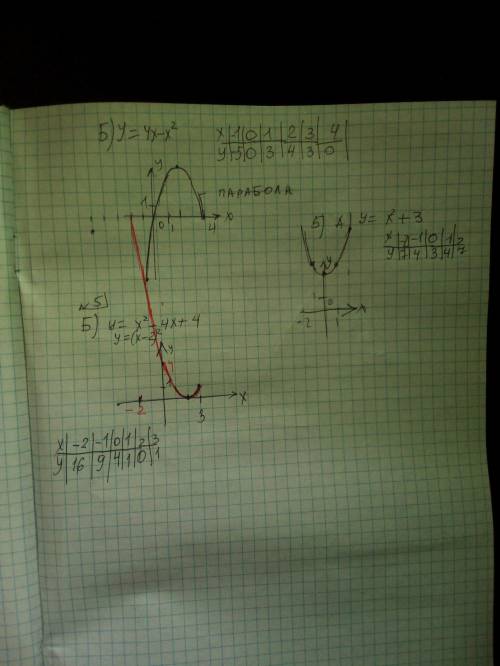 Б) y = 4x-x²
x | -1 | 0 | 1 | 2 | 3 | 4
y | -5 | 0 | 3 | 4 | 3 | 0
y
ПАРАБОЛА
1
0 1 4 x
Б) y = x² + 3
x | -2 | -1 | 0 | 1 | 2
y | 7 | 4 | 3 | 4 | 7
y
1
-2 1 x
№5
Б) y = x² - 4x + 4
y = (x-2)²
y
4
1
-2 3 x
x | -2 | -1 | 0 | 1 | 2 | 3
y | 16 | 9 | 4 | 1 | 0 | 1